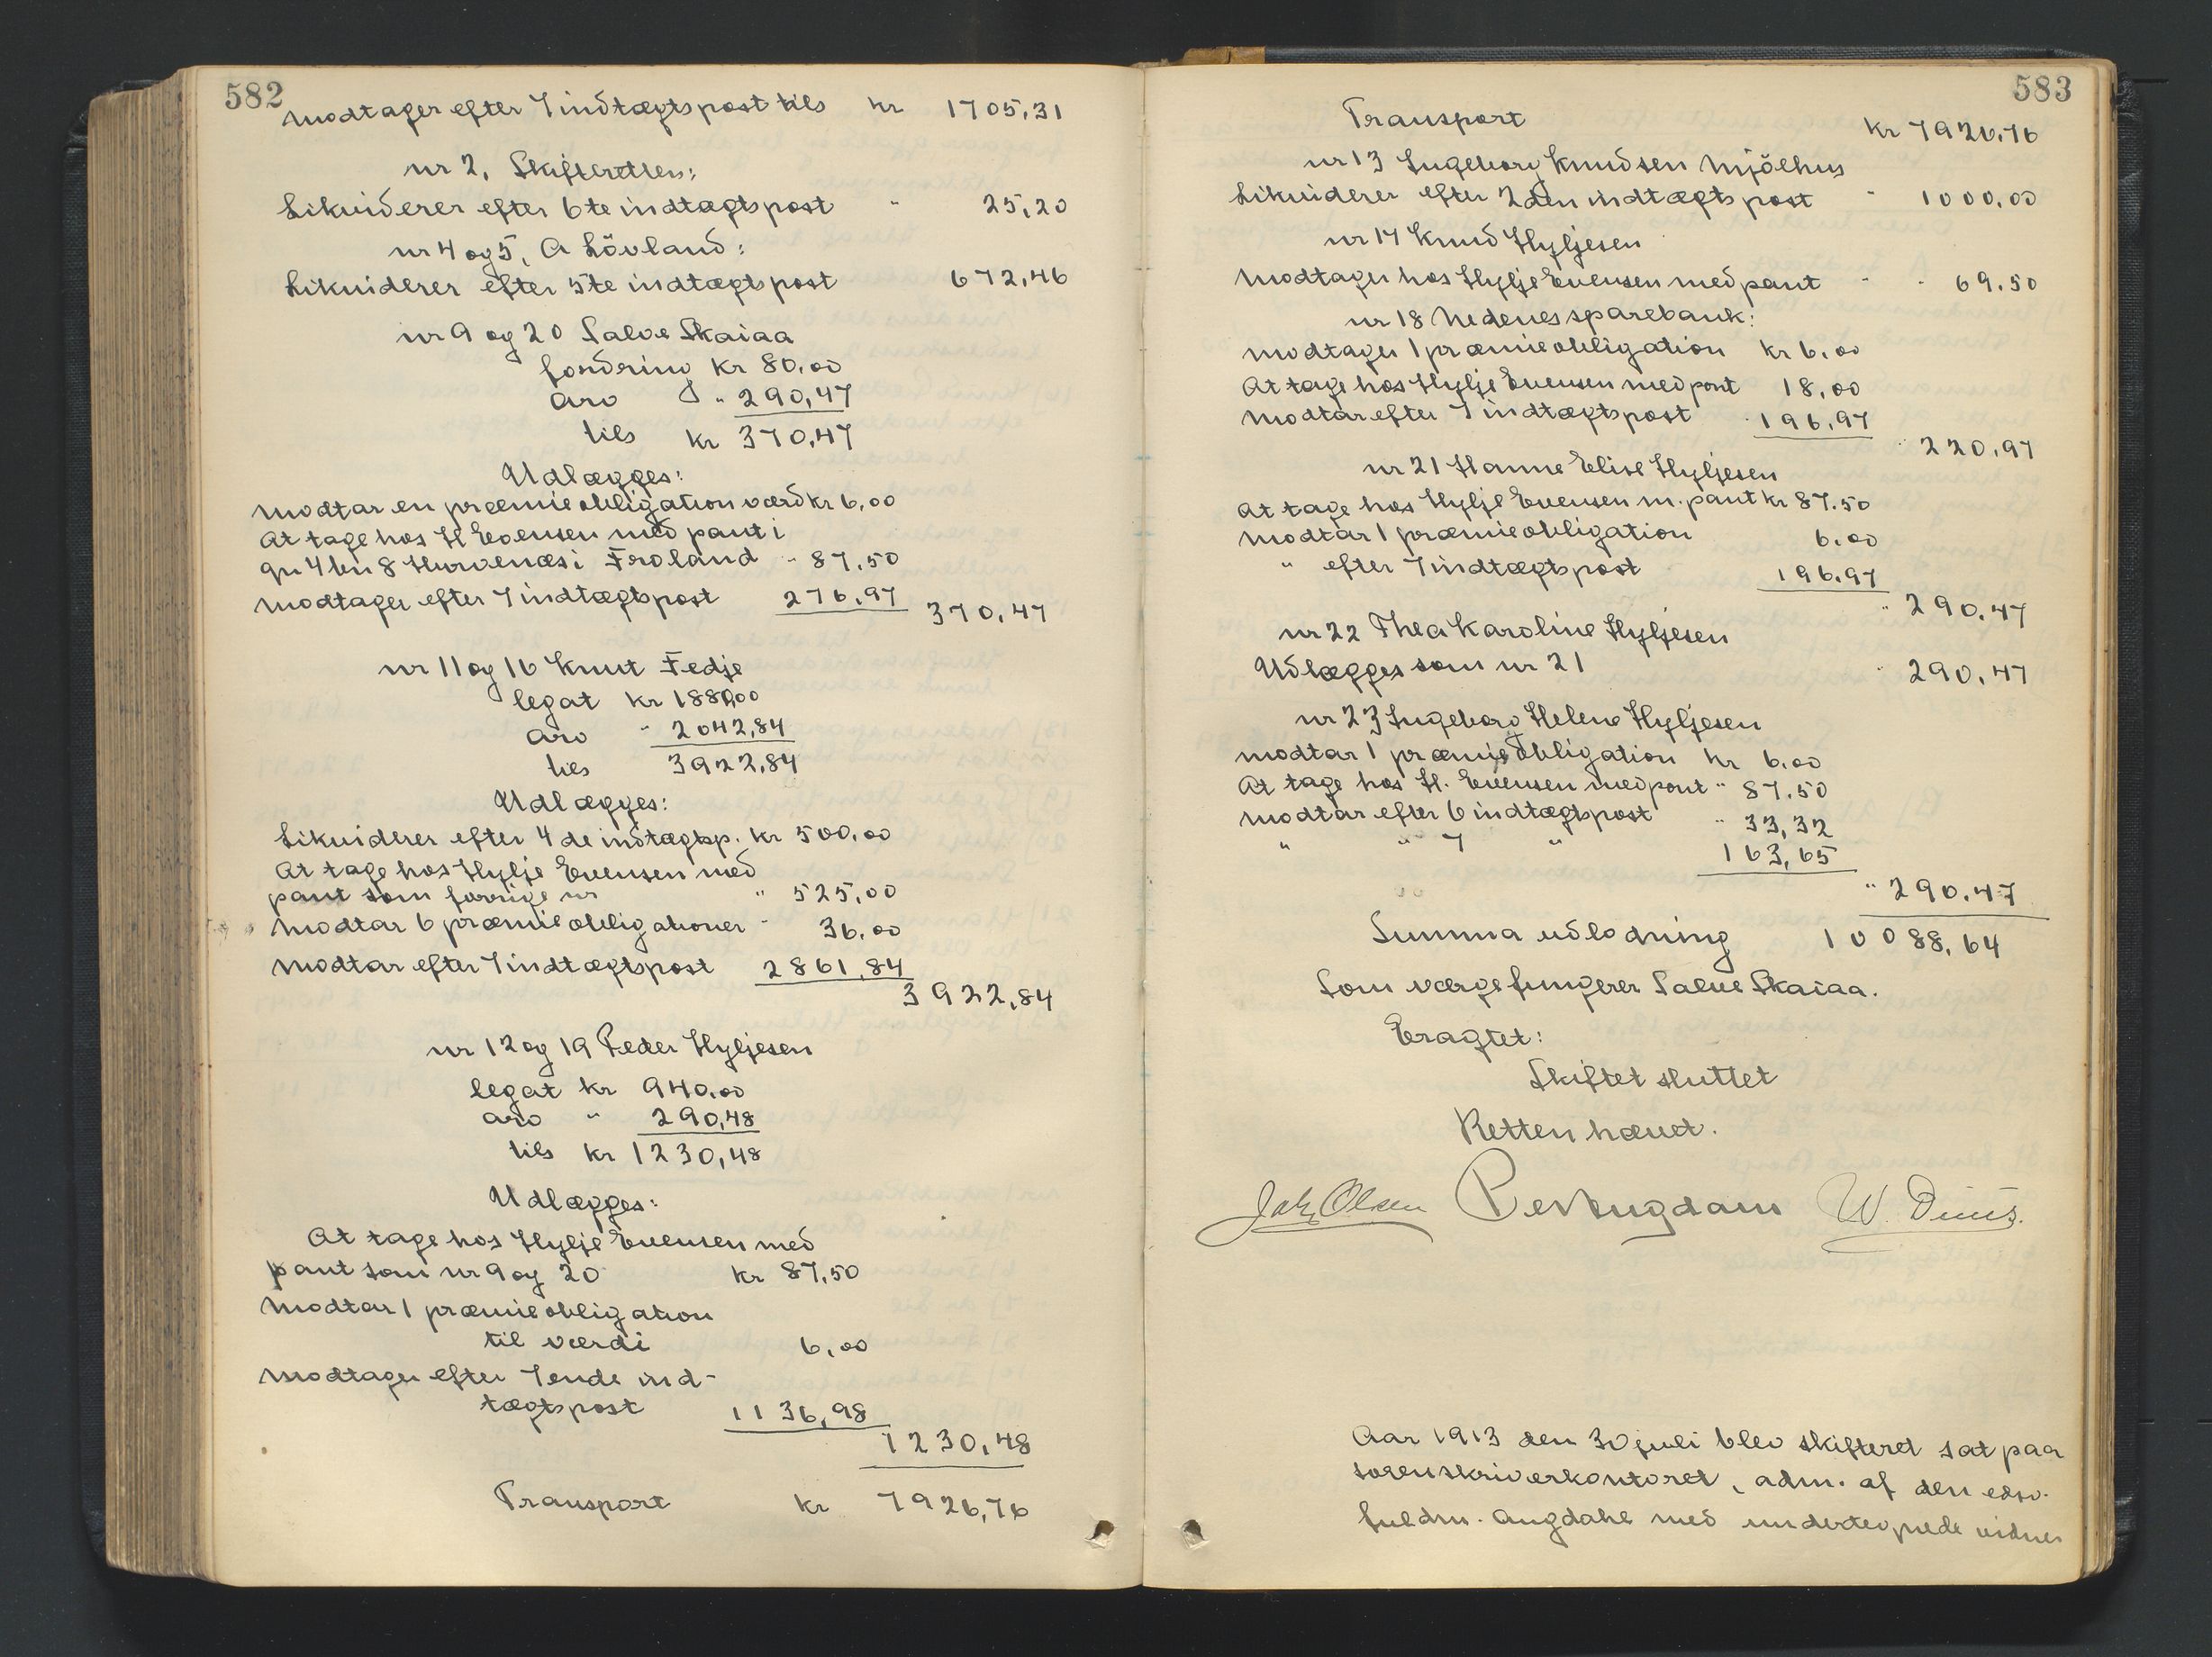 582
Modtager efter 7 indtægtspost tils kr 1705,31
nr 2, Skifteretten:
Likviderer efter 6te indtægtspost " 25,20
nr 4 og 5, A Lövland:
Likviderer efter 5te indtægtspost 672,46
nr 9 og 20 Salve Skaiaa
fordring kr 80,00
Arv " 290,47
tils kr 370,47
Udlægges:
Modtar en præmieobligation værd kr 6,00
At tage hos H Evensen med pant i
gn 4 bn 8 Hurvenæs i Froland " 87,50
Modtager efter 7 indtægtspost 276,97 370,47
nr 11 og 16 Knut Fedje
legat kr 1880,00
Arv " 2042,84
tils 3922,84
Udlægges:
Likviderer efter 4de indtægtsp. kr 500,00
At tage hos Hylje Evensen med
pant som forrige nr " 525,00
Modtar 6 præmieobligationer " 36,00
Modtar efter 7 indtægtspost 2861,84
3922,84
nr 12 og 19 Peder Hyljesen
legat kr 940,00
arv " 290,48
tils kr 1230,48
Udlægges:
At tage hos Hylje Evensen med
pant som nr 9 og 20 kr 87,50
Modtar 1 præmieobligation
til værdi 6,00
Modtager efter 7ende ind-
tægtspost 1136,98
1230,48
Transport kr 7926,76
583
Transport kr 7926,76
nr 13 Ingeborg Knudsen Mjölhus
Likviderer efter 2den indtægtspost " 1000,00
nr 17 Knud Hyljesen
Modtager hos Hylje Evensen med pant " " 69.50
nr 18 Nedenes sparebank:
Modtager 1 præmieobligation kr 6,00
At tage hos Hylje Evensen med pant 18,00
Modtar efter 7 indtægtspost " 196,97
" 220,97
nr 21 Hanne Elise Hyljesen
At tage hos Hylje Evensen m. pant kr 87.50
Modtar 1 præmieobligation 6.00
" efter 7 indtægtspost 196.97
" 290,47
nr 22 Thea Karoline Hyljesen
Udlægges som nr 21 " 290,47
nr 23 Ingeborg Helene Hyljesen
Modtar 1 præmieobligation kr 6.00
At tage hos H. Evensen med pant " 87,50
Modtar efter 6 indtægtspost " 33,32
" " 7 " 163,65
" 290.47
Summa udlodning 10088,64
Som værge fungerer Salve Skaiaa.
Eragtet:
Skiftet sluttet
Retten hævet.
Joh Olsen Per Augdahl W. Duus.
Aar 1913 den 30 juli blev skifteret sat paa
sorenskriverkontoret, adm. af den edsv.
fuldm. Augdahl med undertegnede vidner